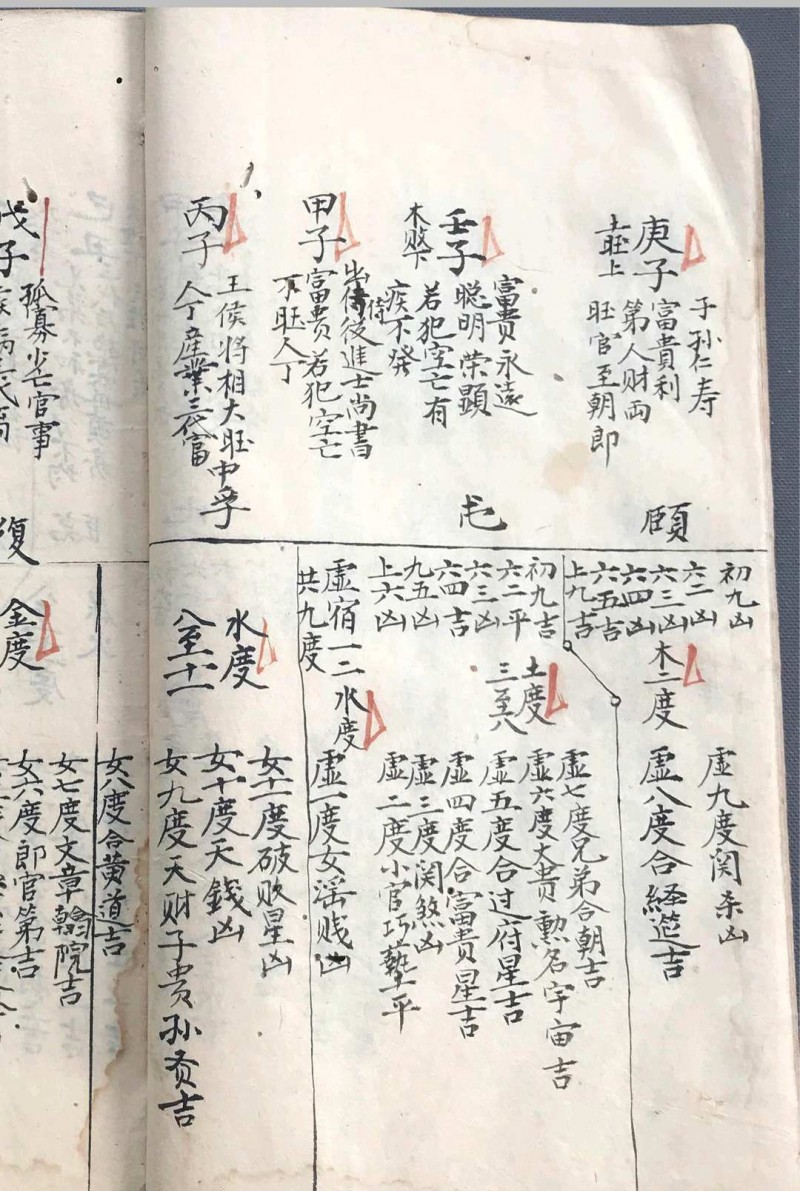 庚子
土旺上
子孙仁寿
富貴利
第人财両
旺官至朝郎
頤
壬子
木敗下
富贵永遠
聪明荣顯
若犯空亡有
疾不發
屯
甲子
出侍從進士尚書
侍
富贵若犯空亡
不旺人丁
丙子
王侯將相大旺
人丁産業三代富
中孚
戊子
孤寡少亡官事
復
初九凶
六二凶
六三凶
六四凶
六五吉
上九吉
木二度
虚九度関杀凶
虚八度合経筵吉
初九吉
六二平
六三凶
六四吉
九五凶
上六凶
土度
三至八
虚七度兄弟合朝吉
虚六度大贵勲名宇宙吉
虚五度合过府星吉
虚四度合富貴星吉
虚三度関煞凶
虚二度小官巧藝平
虚宿一二水度
共九度
虚一度女淫贱凶
水度
八至十一
女十一度破败星凶
女十度天錢凶
女九度天财子贵孙贡吉
女八度合黄道吉
金度
女七度文章翰院吉
女六度郎官第吉